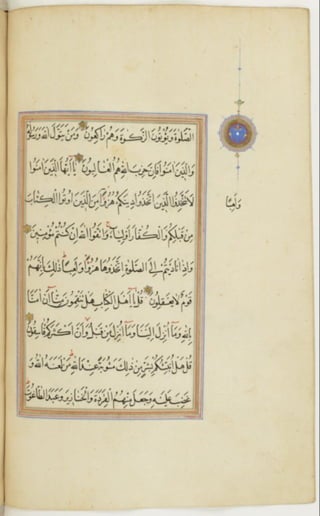 الصَّلٰوةَ وَيُؤْتُونَ الزَّكٰوةَ وَهُمْ رَاكِعُونَ وَمَنْ يَتَوَلَّ اللهَ وَرَسُولَهُ
وَالَّذِينَ اٰمَنُوا فَاِنَّ حِزْبَ اللهِ هُمُ الْغَالِبُونَ يَا اَيُّهَا الَّذِينَ اٰمَنُوا
لَا تَتَّخِذُوا الَّذِينَ اتَّخَذُوا دِينَكُمْ هُزُوًا مِنَ الَّذِينَ اُوتُوا الْكِتَابَ
وَلَعِبًا
مِنْ قَبْلِكُمْ وَالْكُفَّارَ اَوْلِيَاءَ وَاتَّقُوا اللهَ اِنْ كُنْتُمْ مُؤْمِنِينَ
وَاِذَا نَادَيْتُمْ اِلَى الصَّلٰوةِ اتَّخَذُوهَا هُزُوًا وَلَعِبًا ذٰلِكَ بِاَنَّهُمْ
قَوْمٌ لَا يَعْقِلُونَ قُلْ يَا اَهْلَ الْكِتَابِ هَلْ تَنْقِمُونَ مِنَّا اِلَّا اَنْ اٰمَنَّا
بِاللهِ وَمَا اُنْزِلَ اِلَيْنَا وَمَا اُنْزِلَ مِنْ قَبْلُ وَاَنَّ اَكْثَرَكُمْ فَاسِقُونَ
قُلْ هَلْ اُنَبِّئُكُمْ بِشَرٍّ مِنْ ذٰلِكَ مَثُوبَةً عِنْدَ اللهِ مَنْ لَعَنَهُ اللهُ وَ
غَضِبَ عَلَيْهِ وَجَعَلَ مِنْهُمُ الْقِرَدَةَ وَالْخَنَازِيرَ وَعَبَدَ الطَّاغُوتَ